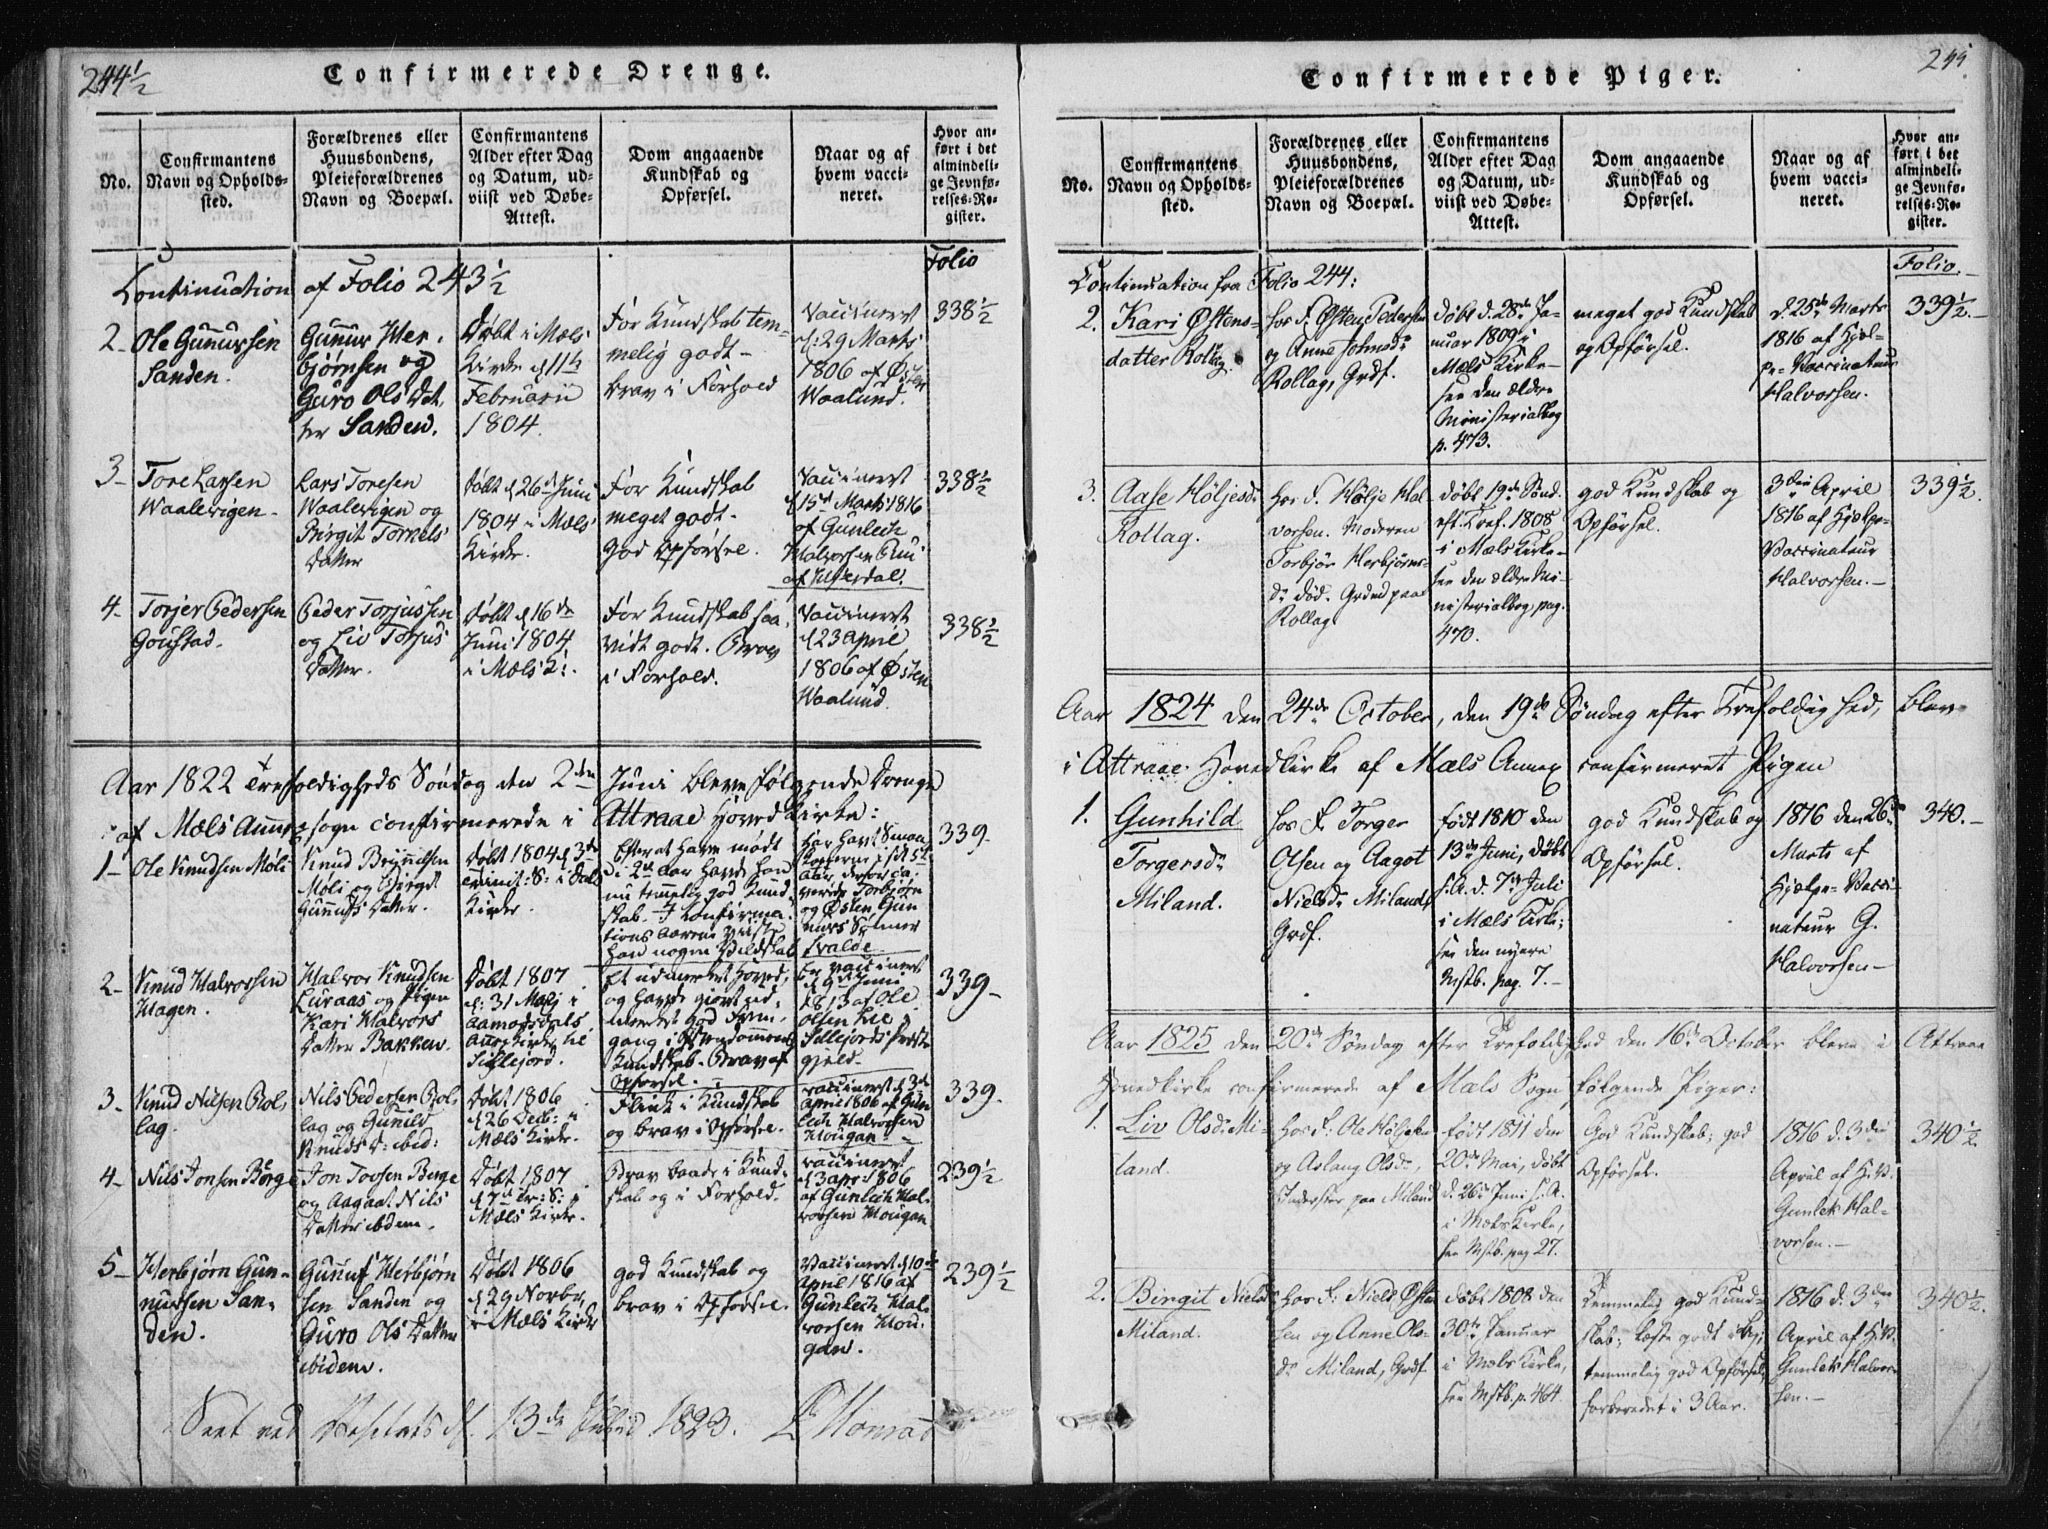 244½
Confirmerede Drenge.
No.
Confirmantens
Navn og Opholds-
sted.
Forældrenes eller
Huusbondens,
Pleieforældrenes
Navn og Boepæl.
Confirmantens
Alder efter Dag
og Datum, ud-
viist ved Døbe-
Attest.
Dom angaaende
Kundskab og
Opførsel.
Naar og af
hvem vacci-
neret.
Hvor an-
ført i det
almindeli-
ge Jevnfø-
relses-Re-
gister.
Continuation af Folio 243½
Folio
2-
Ole Gunursen
Sanden.
Gunur Her-
bjørnsen og
Guro Ols Dat,
ter Sanden.
Døbt i Mæls
Kirke d 11te
Februarii
1804.
For Kundskab tem-
melig godt-
brav i Forhold
Vaccineret
d: 29 Marts
1806 af Østen
Waalund.
338½
3-
Tore Larsen
Waalevigen-
Lars Toresen
Waalevigen og
Birgit Torkels
Datter
Døbt d 26d Juni
1804 i Mæls
Kirke.
For Kundskab
meget godt-
God Opførsel.
Vaccineret
d 15d Marts 1816
af Gunlech
Halvorsen
338½
4-
Torjer Pedersen
Goustad.
Peder Torjussen
og Liv Torjus
Datter.
Døbt d 16de
Juni 1804
i Mæls K:.
For Kundskab saa,
vidt godt. Brav
i Forhold.
Vaccineret
d 23 April
1806 af Østen
Waalund
338½
Aar 1822 Trefoldigheds Søndag den 2den Juni bleve følgende Drenge
af Mæls Annex sogn confirmerede i Attraae Hoved Kirke:
1-
Ole Knudsen Møli
Knud Brynilsen
Møli og Birgit
Gunulfs Datter.
Døbt 1804 d 3de
Trinit: S: i Dals
Kirke.
Efter at have mødt
i 2de Aar havde han
nu temmelig god Kund
skab. I Confirma-
tions Aarene viiste
han nogen Vildskab
Har havt Smaa
Kopperne i sit 5te
Aar,
og Østen Gun
nurs Sønner
Svalde.
339.
2-
Knud Halvorsen
Hagen.
Halvor Knudsen
Luraas og Pigen
Kari Halvors
Datter Bakken.
Døbt 1807
d: 31 Maij i
Aamodsdals
Annex Kirke til
Sillejord.
Et udmærket Hoved,
og havde giort ud-
mærket god Frem-
gang i Christendommens
Kundskab. Brav af
Opførsel.
Er vaccineret
d 9de Junii
1813 af Ole
Olsen Lie i
Sillejords Præste
gjeld.
339-
3-
Knud Nilsen Rol,
lag.
Nils Pedersen Rol
lag og Gunild
Knuds D: ibid:
Døbt 1806
d 26 Decb: i
Mæls Kirke.
Flink i Kundskab
og brav i Opførsel.
vaccineret d 3de
April 1806 af Gun
lech Halvorsen
Hougan.
339.
4-
Nils Jonsen Børge
Jon Tovsen Børge
og Aagaat Nils
Datter ibidem.
Døbt 1807
d 7de Tr: S: i
Mæls Kirke.
Brav baade i Kund-
skab og i Forhold.
vaccineret
d 3 apr: 1806
af Gunlech Hal-
vorsen Hougan
239½
5-
Herbjørn Gun-
nursen San-
den.
Gunuf Herbjørn
sen Sanden og
Guro Ols Datter
ibidem.
Døbt 1806
d 29 Novbr,
i Mæls Kirke
god Kundskab og
brav i Opførsel.
Vaccineret d 10de
April 1816 af
Gunlech Hal-
vorsen Hou-
gan.
239½
Seet ved Visitats d. 13de Julii 1823. Monrad
245.
Confirmerede Piger.
No.
Confirmantens
Navn og Opholds-
sted.
Forældrenes eller
Huusbondens,
Pleieforældrenes
Navn og Boepæl.
Confirmantens
Alder efter Dag
og Datum, ud-
viist ved Døbe-
Attest.
Dom angaaende
Kundskab og
Opførsel.
Naar og af
hvem vacci-
neret.
Hvor an-
ført i det
almindeli-
ge Jevnfø-
relses-Re-
gister.
Continuation fra Folio 244:
Folio.
2.
Kari Østens-
datter Rollag.
hos F. Østen Pedersen
og Anne Johnsdr
Rollag, Grdf.
døbt d. 28de Ja-
nuar 1809 i
Mæls Kirke-
see den ældre
Ministerialbog
p. 473.
meget god Kundskab
og Opførsel.
d. 25de Marts
1816 af Hjæl-
pe-Vaccinateur
Halvorsen.
339½.
3.
Aase Høljesdr
Rollag.
hos F. Hølje Hal
vorsen. Moderen
Torbjør Herbjørns-
dr død. Grdmd paa
Rollag
døbt 19de Sønd.
eft. Tref. 1808
i Mæls Kirke-
see den ældre Mi-
nisterialbog pag.
470.
god Kundskab og
Opførsel.
3die April
1816 af Hjælpe-
Vaccinateur
Halvorsen.-
339½.
Aar 1824 den 24de October, den 19de Søndag efter Trefoldighed, blev
i Attraae Hovedkirke af Mæls Annex confirmeret Pigen
1.
Gunhild
Torgersdr
Miland.
hos F. Torger
Olsen og Aagot
Nielsdr Miland,
Grdf.
født 1810 den
13de Juni, døbt
s.A. d. 7de Juli
i Mæls Kirke;
see den nyere
Mstb. pag. 7.-
god Kundskab og
Opførsel.
1816 den 26de
Marts af
Hjælpe-Vacci-
nateur G.
Halvorsen-
340.-
Aar 1825 den 20de Søndag efter Trefoldighed den 16de October bleve i Attraae
Hovedkirke confirmerede af Mæls Sogn følgende Piger:
1.
Liv Olsdr Mi-
land.
Hos F: Ole Høljesen
og Aslaug Olsdr,
Inderster paa Miland
født 1811 den
20de Mai, døbt
d. 26de Juni s.A.
i Mæls Kirke,
see Mstb. pag 27.
God Kundskab; god
Opførsel.
1816 d. 3die
April af H.V.
Gunlek Hal-
vorsen.-
340½
2.
Birgit Nielsdr
Miland.
Hos F: Niels Østen
sen og Anne Ols-
dr Miland, Grdf
døbt 1808 den
30te Januar
i Mæls Kirke,
see Mstb. p. 464.
Temmelig god Kund-
skab; læste godt i Bog;
temmelig god Opførsel,
forberedet i 3 Aar.
1816 d. 3die
April af H.V.
Gunlek Halvor-
sen.-
340½.